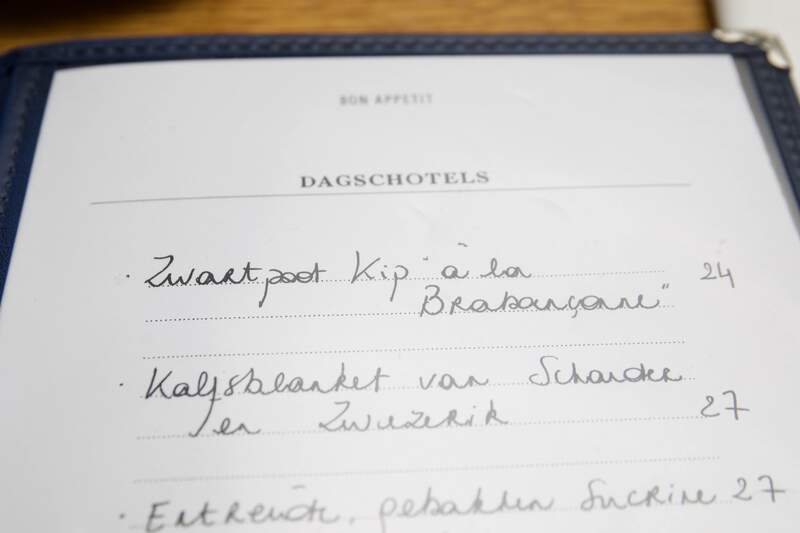 BON APPETIT
DAGSCHOTELS
· Zwartpoot Kip "à la 24
Brabançonne"
· Kalfsblanket van Schouder
en Zwezerik 27
· Entrecôte, gebakken Sucrine 27